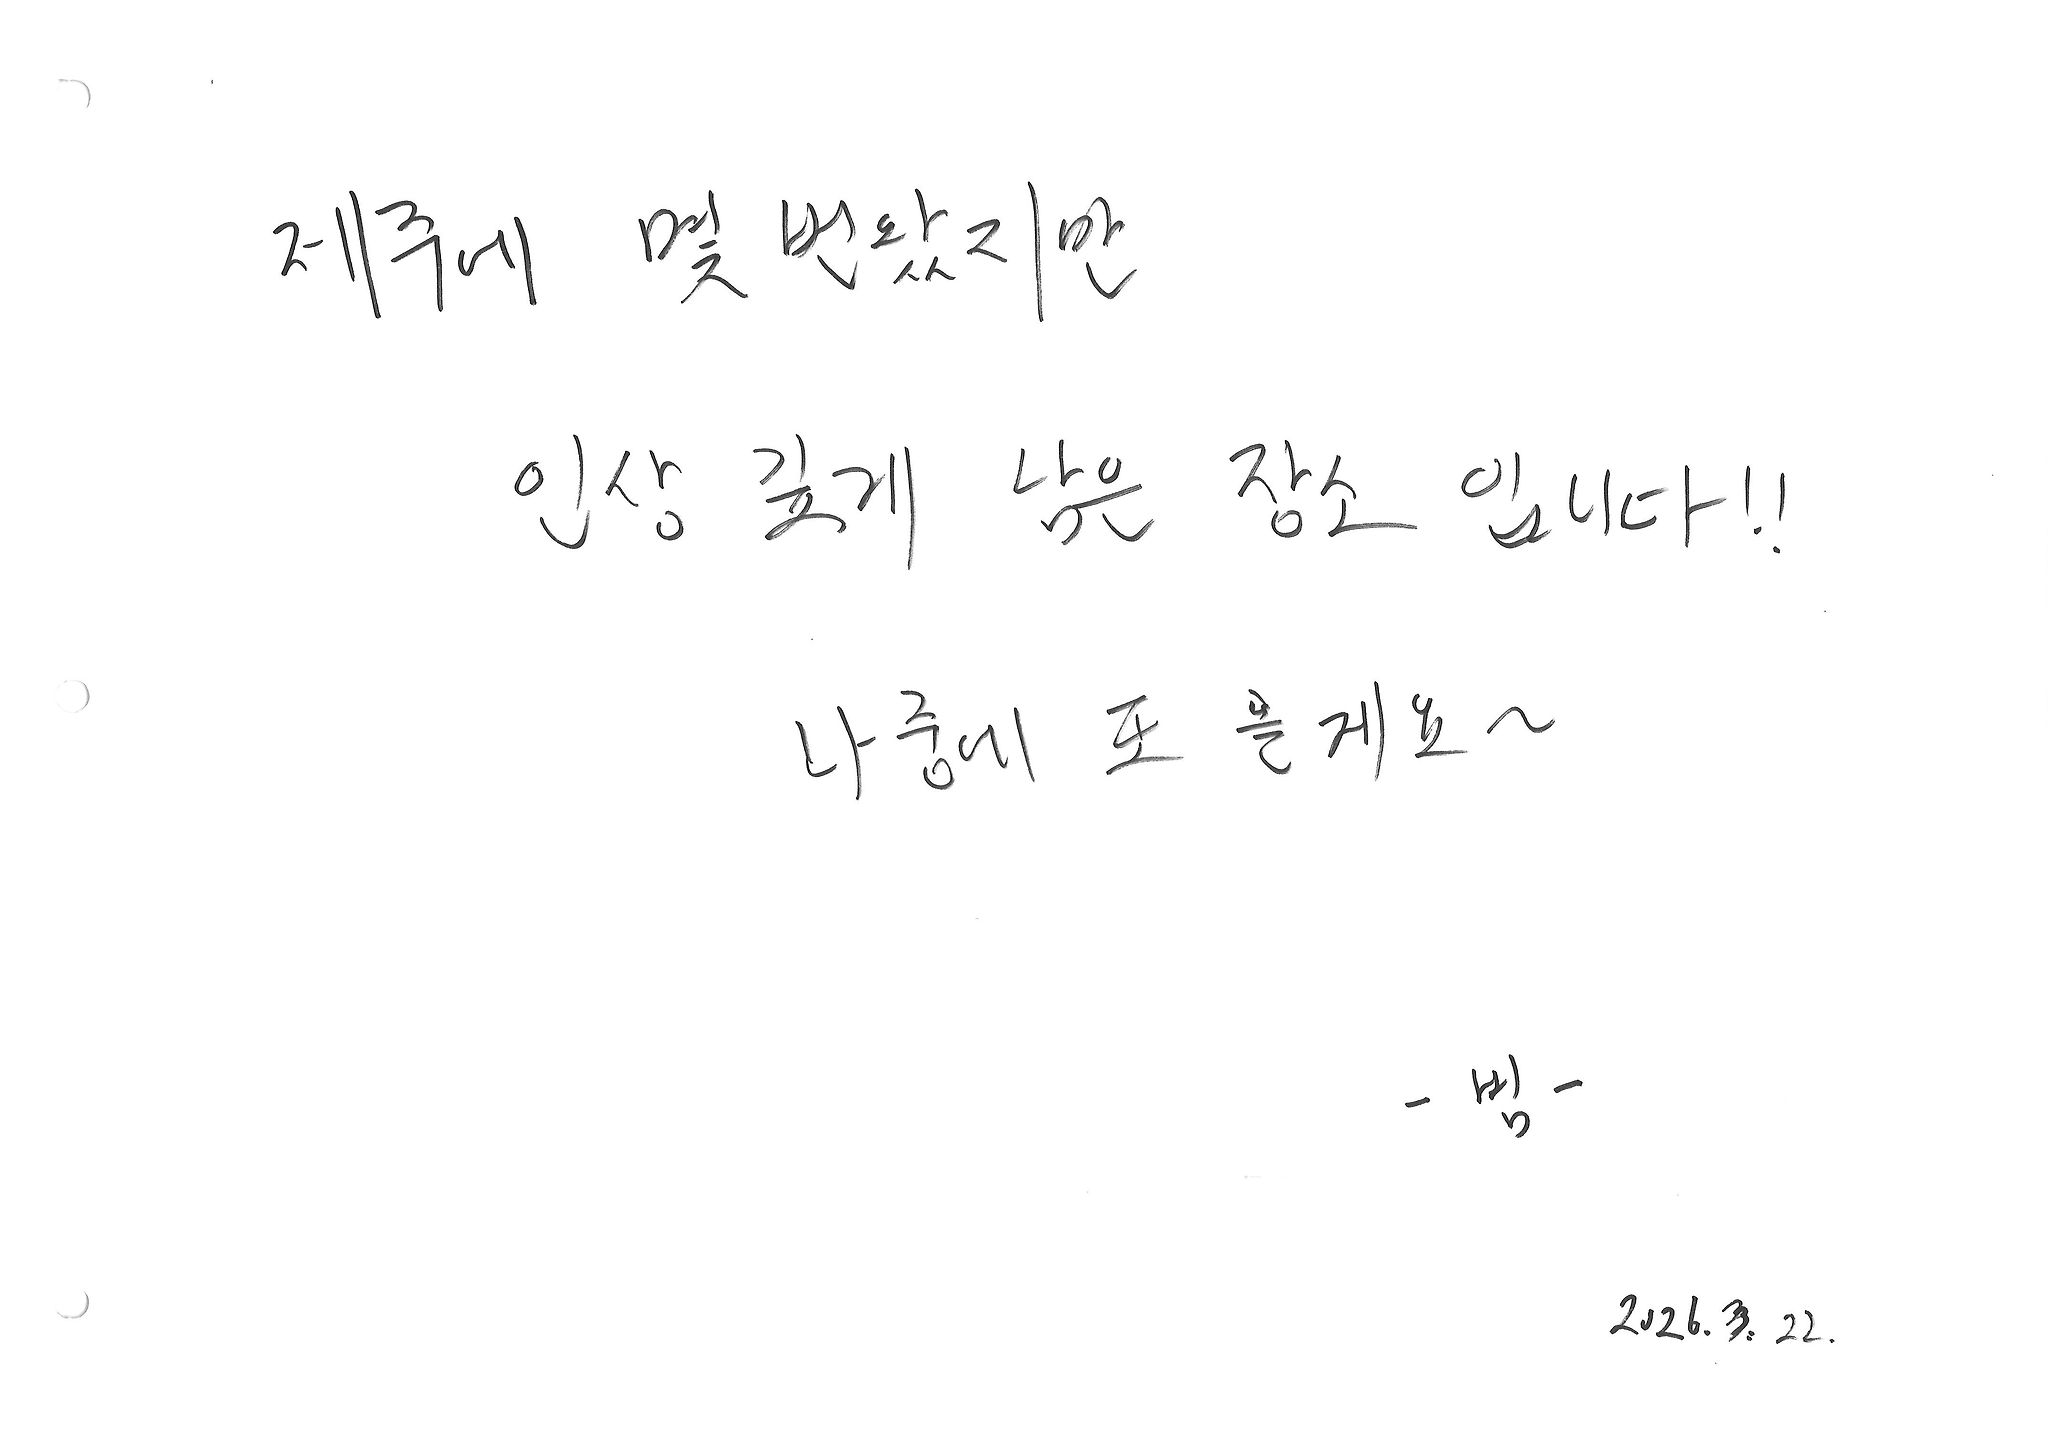 제주에 몇 번왔지만
인상 깊게 남은 장소 입니다!!
나중에 또 올게요~
- 범 -
2026. 3. 22.